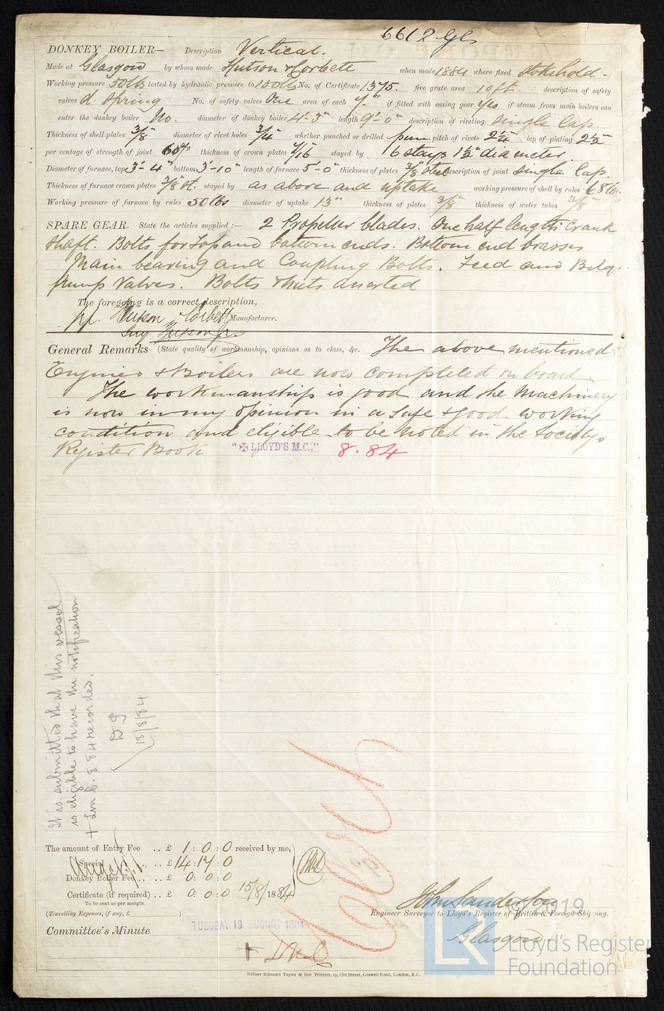 6612 Gls
DONKEY BOILER— Description Vertical.
Made at Glasgow by whom made Hutson & Corbett when made 1884 where fixed Stokehold.
Working pressure 50 lb tested by hydraulic pressure to 100 lb No. of Certificate 1375. fire grate area 10 ft. description of safety
valves d. Spring No. of safety valves One area of each 7" if fitted with easing gear yes if steam from main boilers can
enter the donkey boiler No. diameter of donkey boiler 4'-3" length 9'-0" description of riveting Single lap
Thickness of shell plates 3/8 diameter of rivet holes 3/4" whether punched or drilled pun pitch of rivets 2 1/4 lap of plating 2 1/2
per centage of strength of joint thickness of crown plates 7/16 stayed by 6 stays 1 1/2" diameter
Diameter of furnace, top 3'-4" bottom 3'-10" length of furnace 5'-0" thickness of plates 3/8 Steel description of joint Single lap.
Thickness of furnace crown plates 3/8 St. stayed by as above and uptake working pressure of shell by rules 68 lb.
Working pressure of furnace by rules 50 lbs diameter of uptake 13" thickness of plates 3/8 thickness of water tubes 3/8
SPARE GEAR. State the articles supplied :— 2 Propeller blades. One half length Crank
Shaft. Bolts for Top and bottom ends. Bottom end brasses
Main bearing and Coupling Bolts. Feed and Bilge
pump Valves. Bolts & Nuts assorted
The foregoing is a correct description,
Hutson & Corbett Manufacturer.
General Remarks (State quality of workmanship, opinions as to class, &c. The above mentioned
Engines & Boilers are now completed on board.
The workmanship is good and the Machinery
is now in my opinion in a safe & good working
condition and eligible to be noted in the Society's
Register Book "✠ LLOYD'S M.C.," 8.84
It is submitted that this vessel
is eligible to have the notification
+ LMC 8.84 recorded.
18/8/84
The amount of Entry Fee .. £ 1 : 0 : 0 received by me,
Special .. £ 14 : 17 : 0
Donkey Boiler Fee .. £ 0 : 0 : 0
Certificate (if required) .. £ 0 : 0 : 0 15/8/1884
To be sent as per margin.
(Travelling Expenses, if any, £ )
John Sanderson
Engineer Surveyor to Lloyd's Register of British & Foreign Shipping.
Glasgow
Committee's Minute
TUESDAY 19 AUGUST 1884
+ LMC
Nelson Edmund Taylor & Son Printers, 19, Old Street, Goswell Road, London, E.C.
2019
LR
Lloyd's Register
Foundation